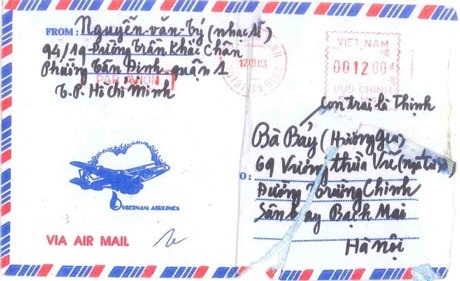 FROM: Nguyễn văn Tý (nhạc sĩ)
94/19 Đường Trần Khắc Chân
Phường Tân Định quận 1
PAR AVION
T.P. Hồ Chí Minh
VIỆT NAM
00120
BƯU CHÍNH
17.02.03
Con trai là Thịnh
Bà Bảy (Hương Gia)
69 Vương thừa Vũ
TO:
Đường Trường Chinh
Sân bay Bạch Mai
Hà Nội
VIETNAM AIRLINES
VIA AIR MAIL